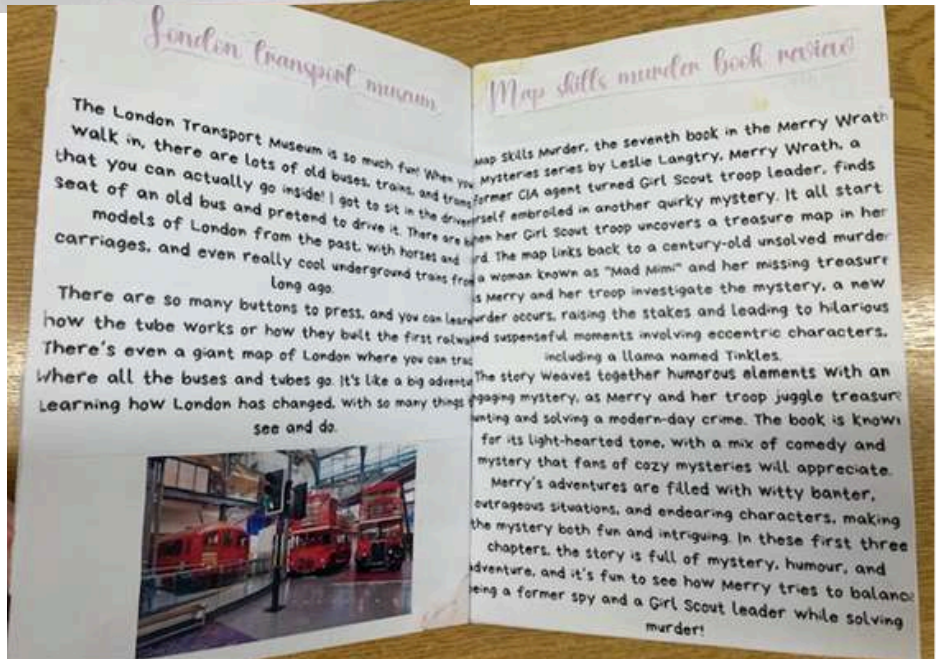 London transport museum
The London Transport Museum is so much fun! When you
walk in, there are lots of old buses, trains, and trams
that you can actually go inside! I got to sit in the driver
seat of an old bus and pretend to drive it. There are
models of London from the past, with horses and
carriages, and even really cool underground trains from
long ago.
There are so many buttons to press, and you can learn
how the tube works or how they built the first
There's even a giant map of London where you can
where all the buses and tubes go. It's like a big
Learning how London has changed, with so many things
see and do.
Map skills murder book review
Map Skills Murder, the seventh book in the Merry Wrath
Mysteries series by Leslie Langtry, Merry Wrath, a
former CIA agent turned Girl Scout troop leader, finds
embroiled in another quirky mystery. It all start
her Girl Scout troop uncovers a treasure map in her
The map links back to a century-old unsolved murder
a woman known as "Mad Mimi" and her missing treasure
Merry and her troop investigate the mystery, a new
occurs, raising the stakes and leading to hilarious
and suspenseful moments involving eccentric characters,
including a llama named Tinkles.
The story weaves together humorous elements with an
mystery, as Merry and her troop juggle treasure
and solving a modern-day crime. The book is known
for its light-hearted tone, with a mix of comedy and
mystery that fans of cozy mysteries will appreciate.
Merry's adventures are filled with witty banter,
outrageous situations, and endearing characters, making
the mystery both fun and intriguing. In these first three
chapters, the story is full of mystery, humour, and
adventure, and it's fun to see how Merry tries to balance
being a former spy and a Girl Scout leader while solving
murder!